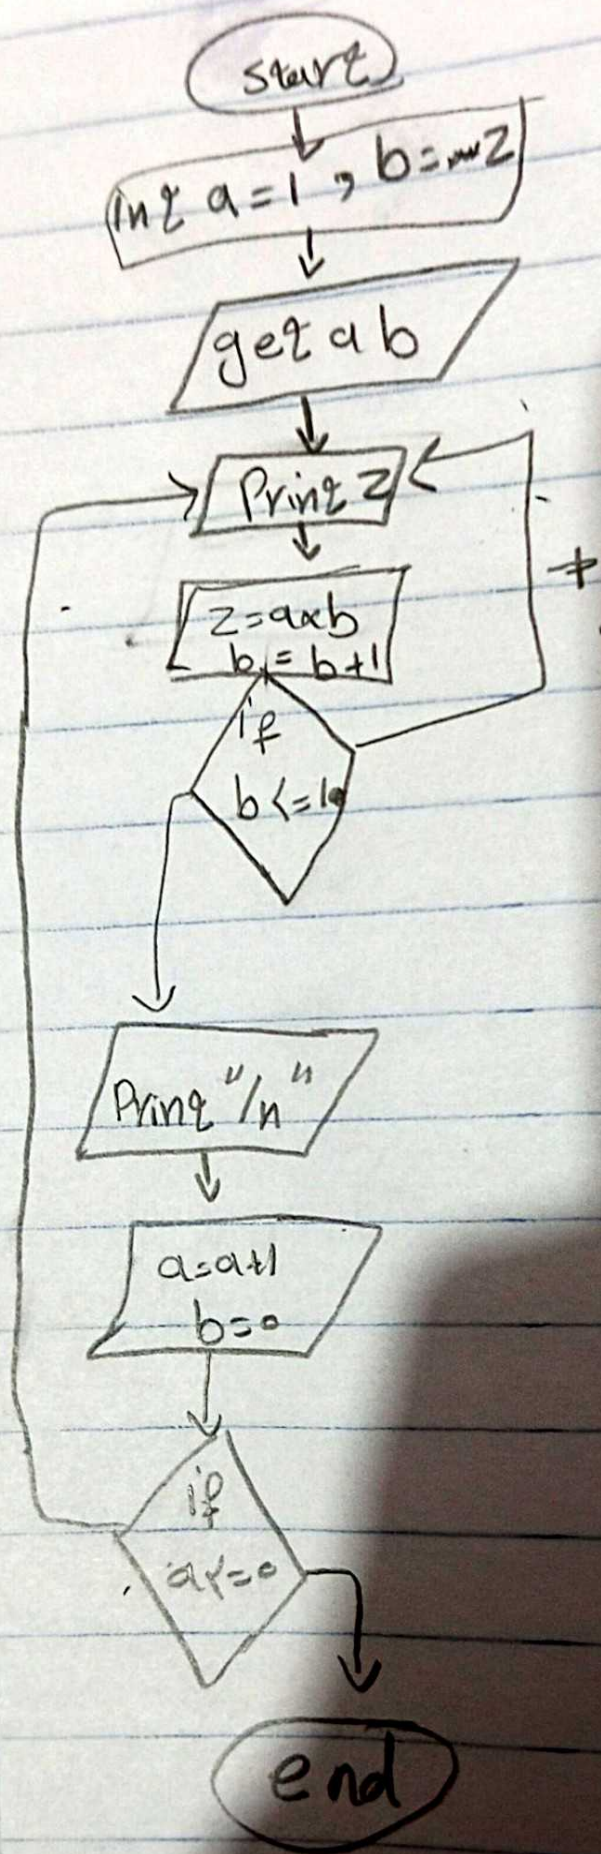 start
int a=1 , b= 2
get a b
Print z
+
z=a×b
b = b+1
if
b<=10
Print "/n"
a=a+1
b=0
if
a<=0
end